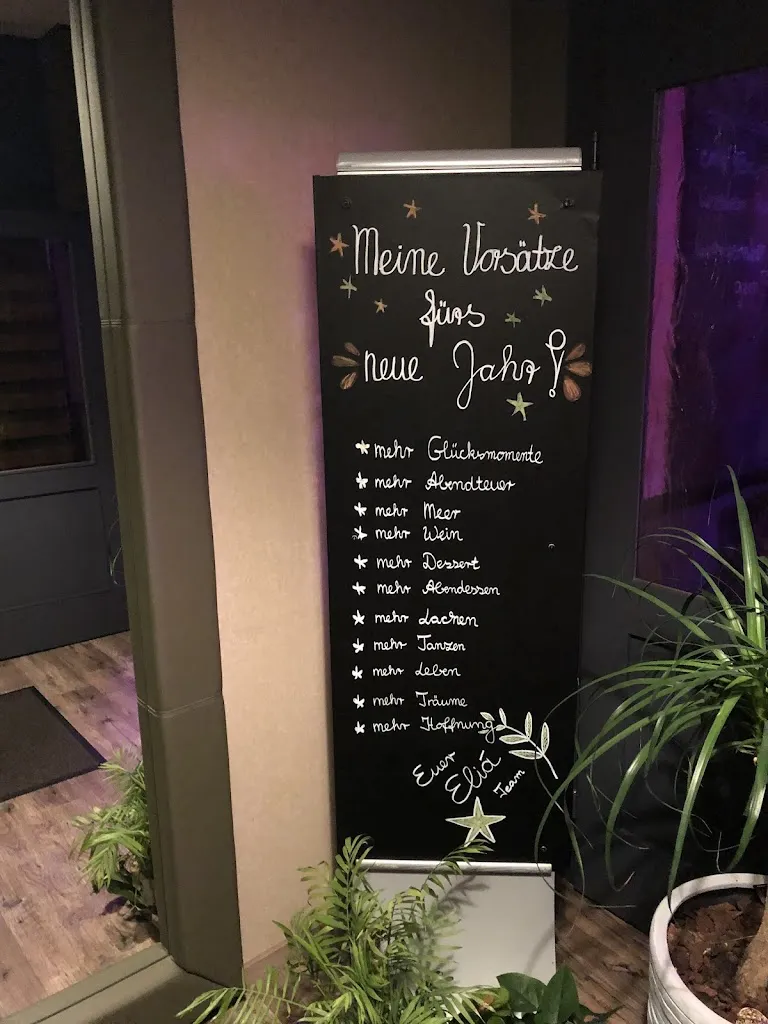 Meine Vorsätze
fürs
neue Jahr!
* mehr Glücksmomente
* mehr Abendteuer
* mehr Meer
* mehr Wein
* mehr Dessert
* mehr Abendessen
* mehr Lachen
* mehr Tanzen
* mehr Leben
* mehr Träume
* mehr Hoffnung
Euer
Eliá
Team